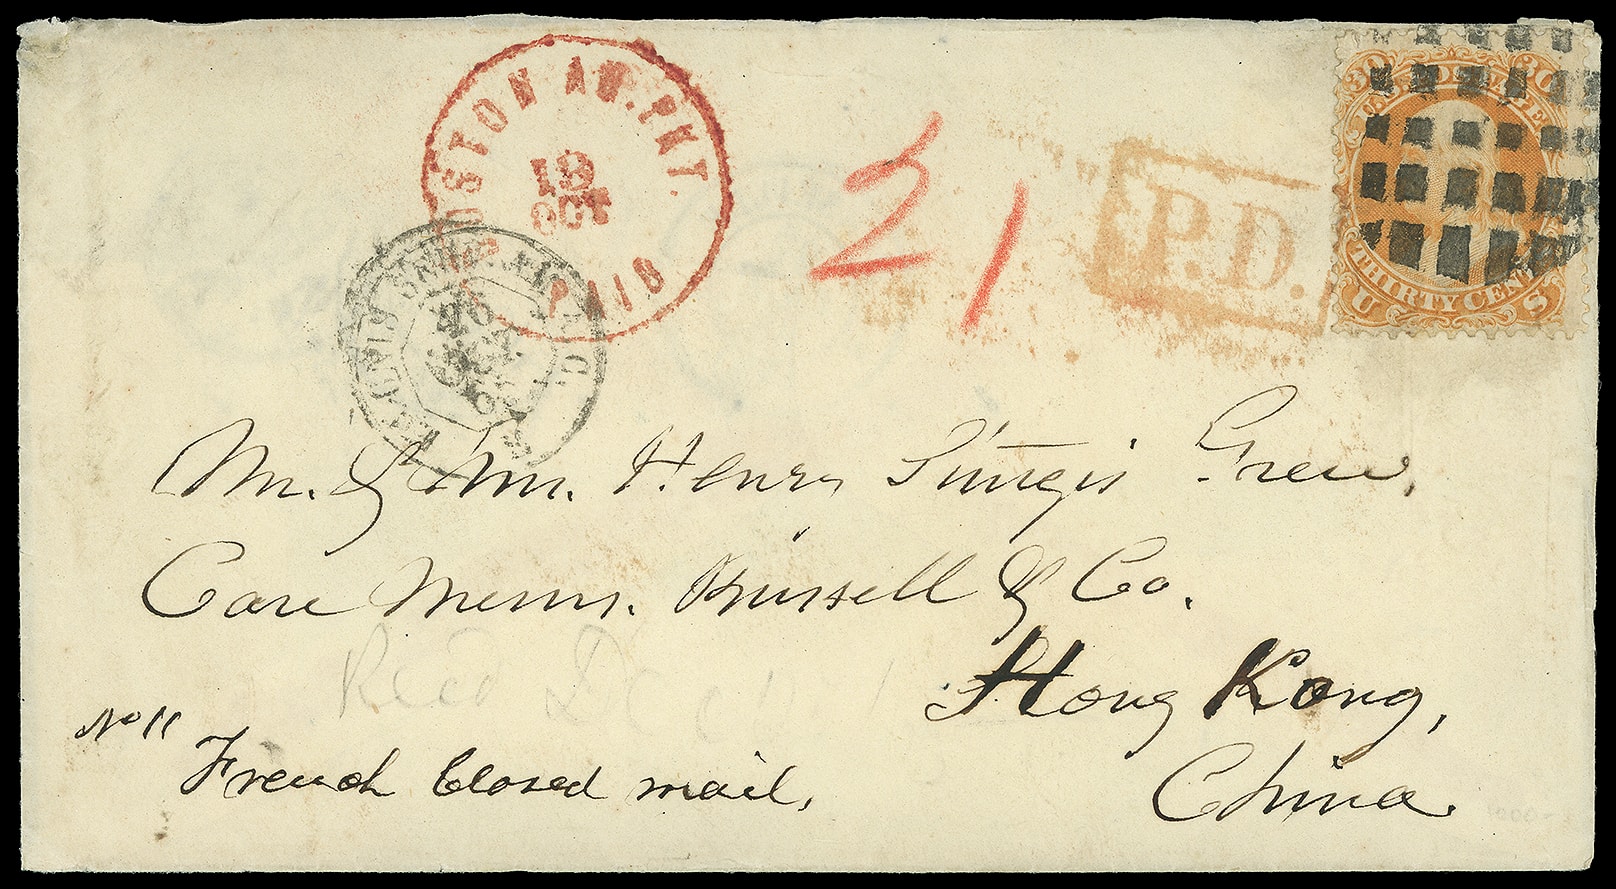 BOSTON AM. PKT.
13
OCT
PAID
21
P.D.
30 30
U.S. POSTAGE
THIRTY CENTS
U S
Mr. & Mrs. Henry Sturgis Grew,
Care Messrs. Russell & Co.
Hong Kong,
China.
No 11
French Closed mail,
Recd Dec